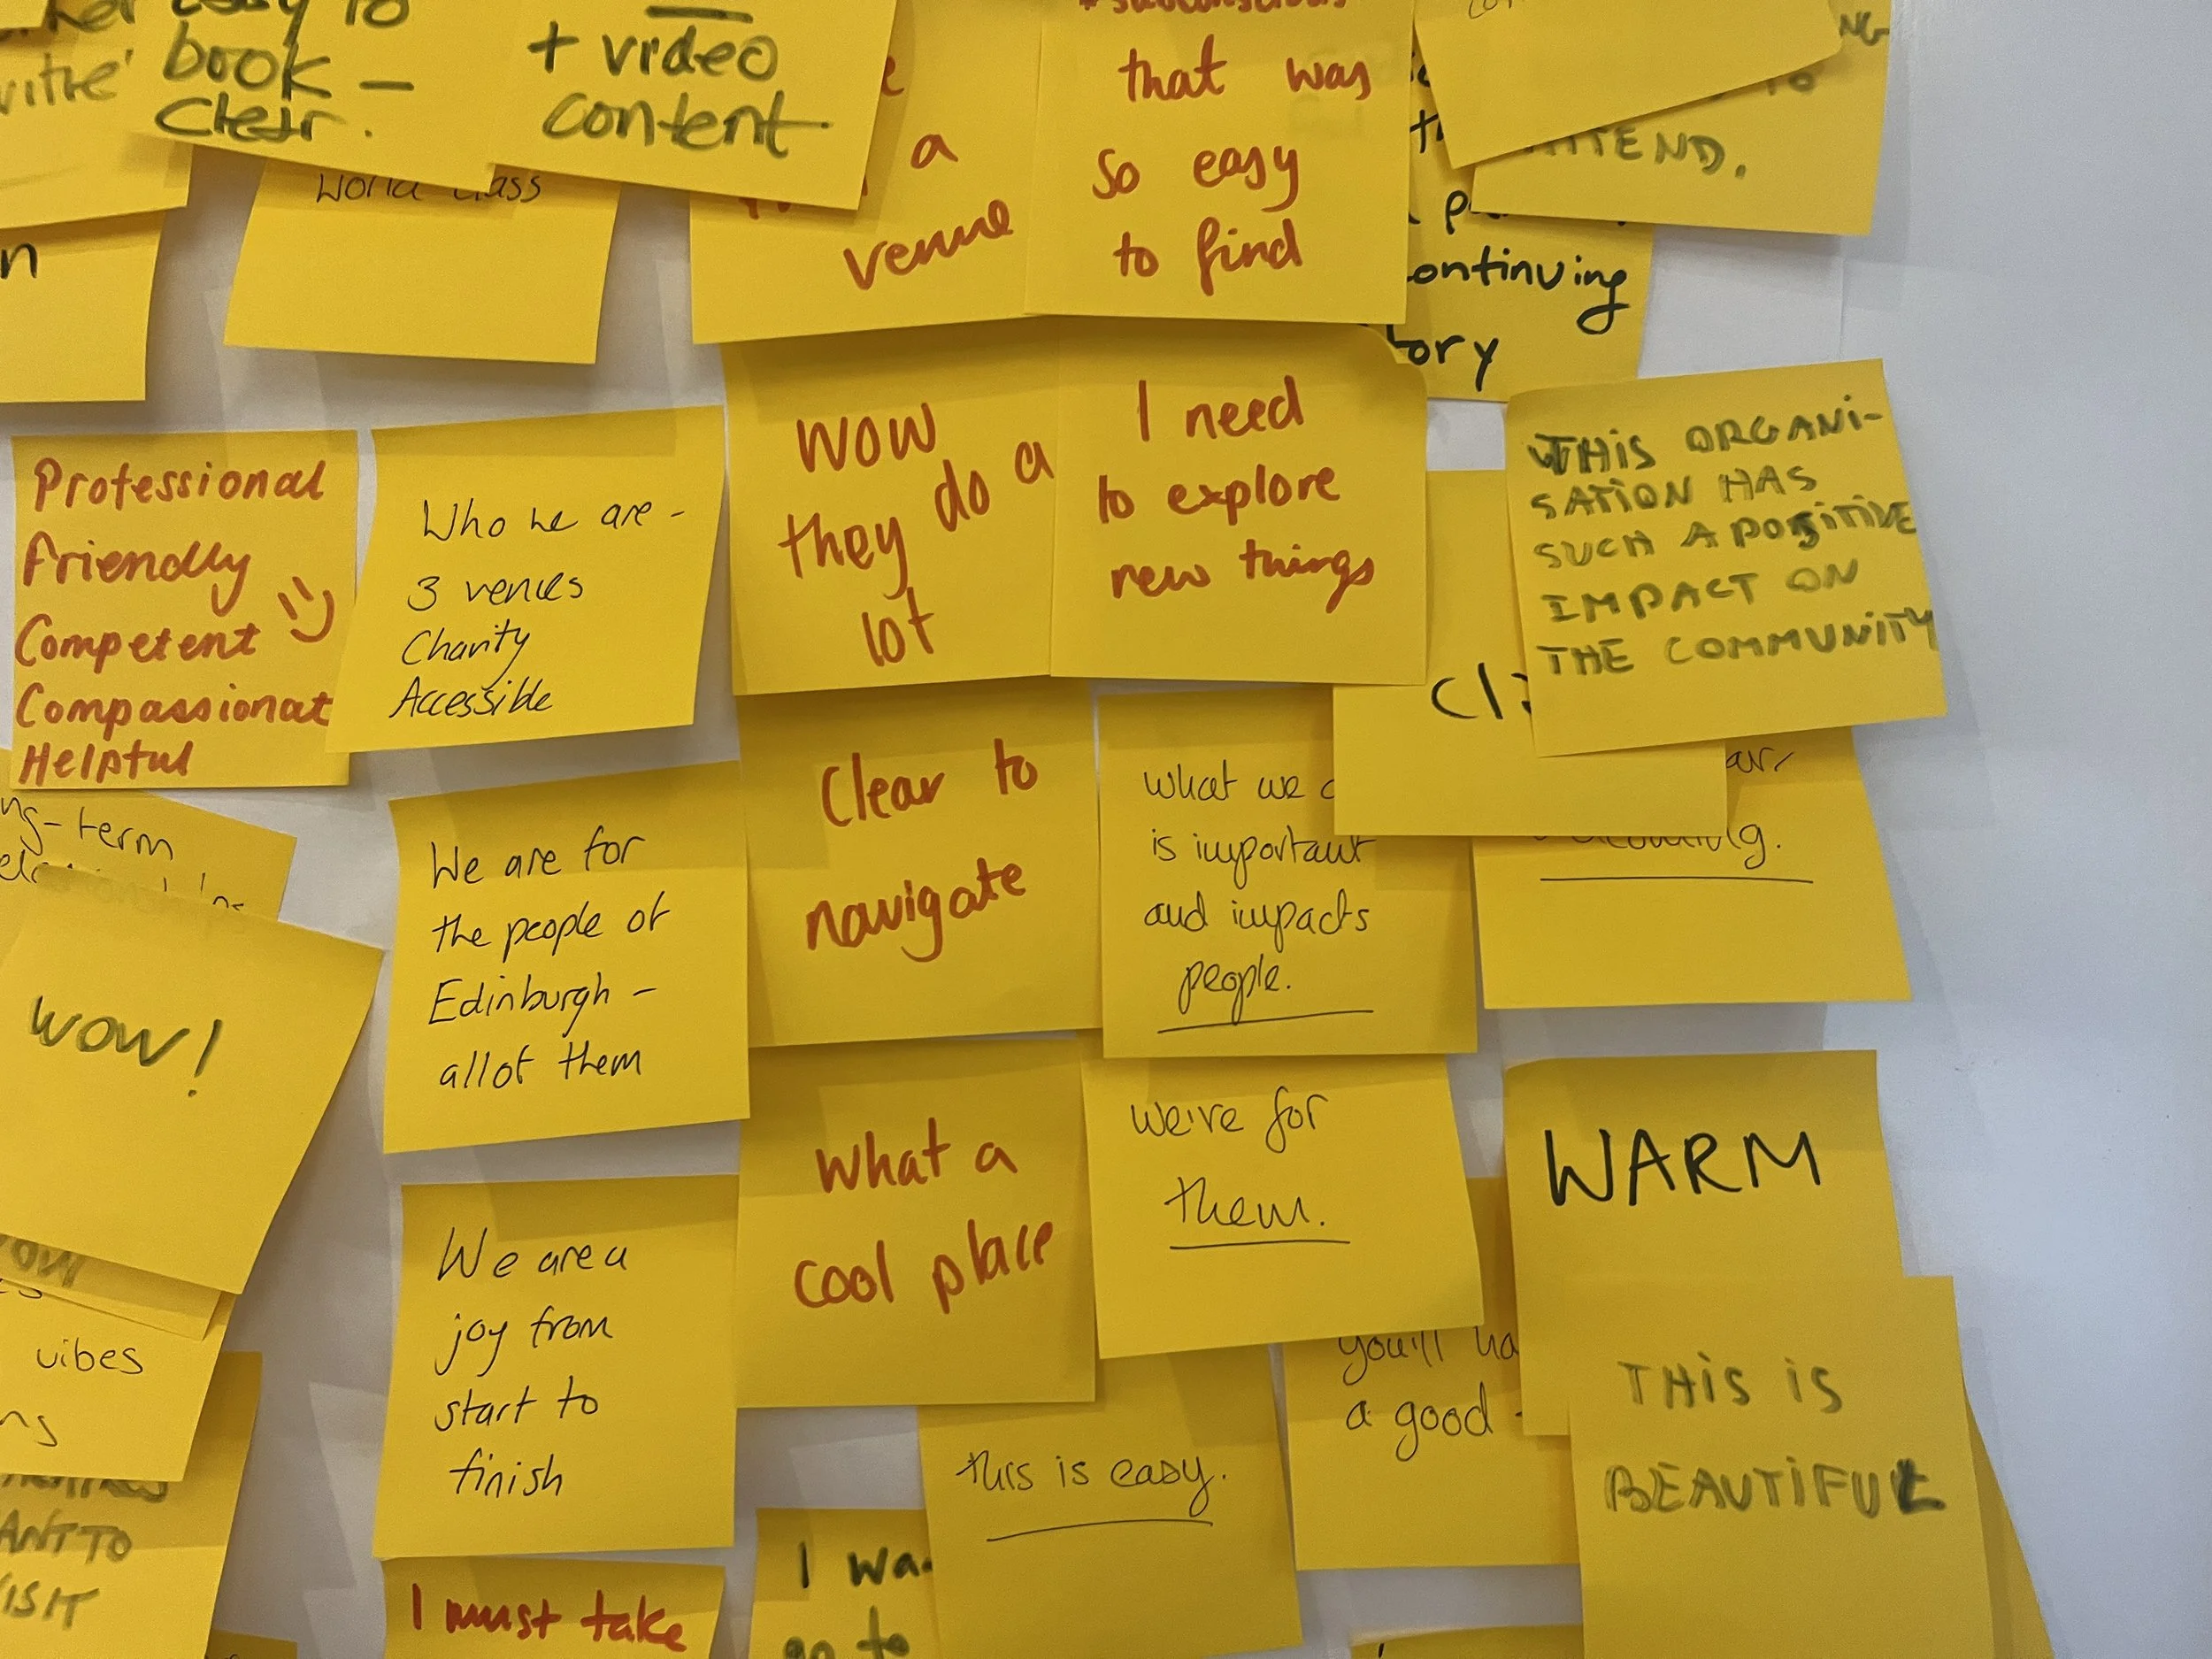 book -
Clear.
+ video
content
World class
a
venue
that was
so easy
to find
ATTEND.
continuing
Professional
Friendly
Competent
Compassionat
Helpful
Who we are -
3 venues
Charity
Accessible
WOW
they do a
lot
I need
to explore
new things
THIS ORGANI-
SATION HAS
SUCH A POSITIVE
IMPACT ON
THE COMMUNITY
We are for
the people of
Edinburgh -
all of them
Clear to
navigate
what we
is important
and impacts
people.
term
WOW!
What a
cool place
we're for
them.
WARM
vibes
We are a
joy from
start to
finish
you'll
a good
this is easy.
THIS IS
BEAUTIFUL
I must take
I
go to